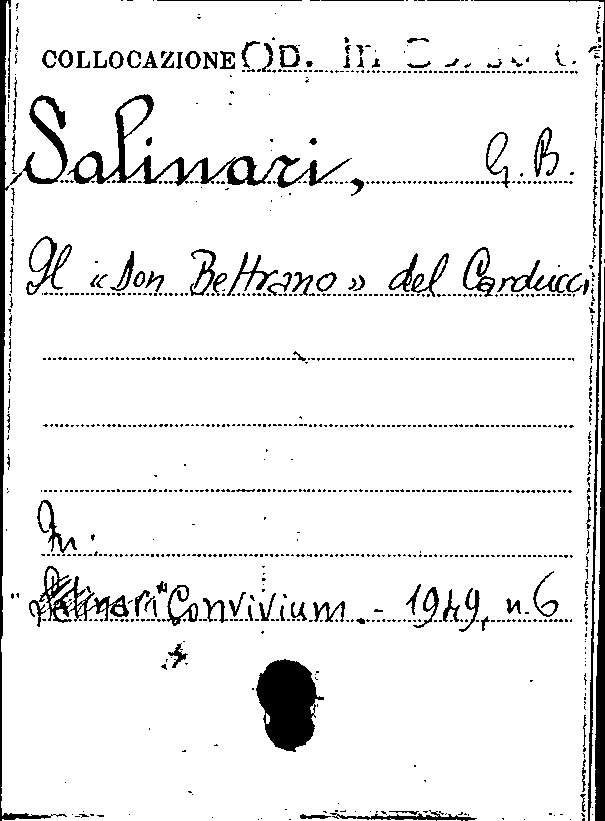 COLLOCAZIONE Op. in
Salinari, G. B.
Il «Don Beltrano» del Carducci
In:
"Salinari "Convivium. - 1949, n. 6